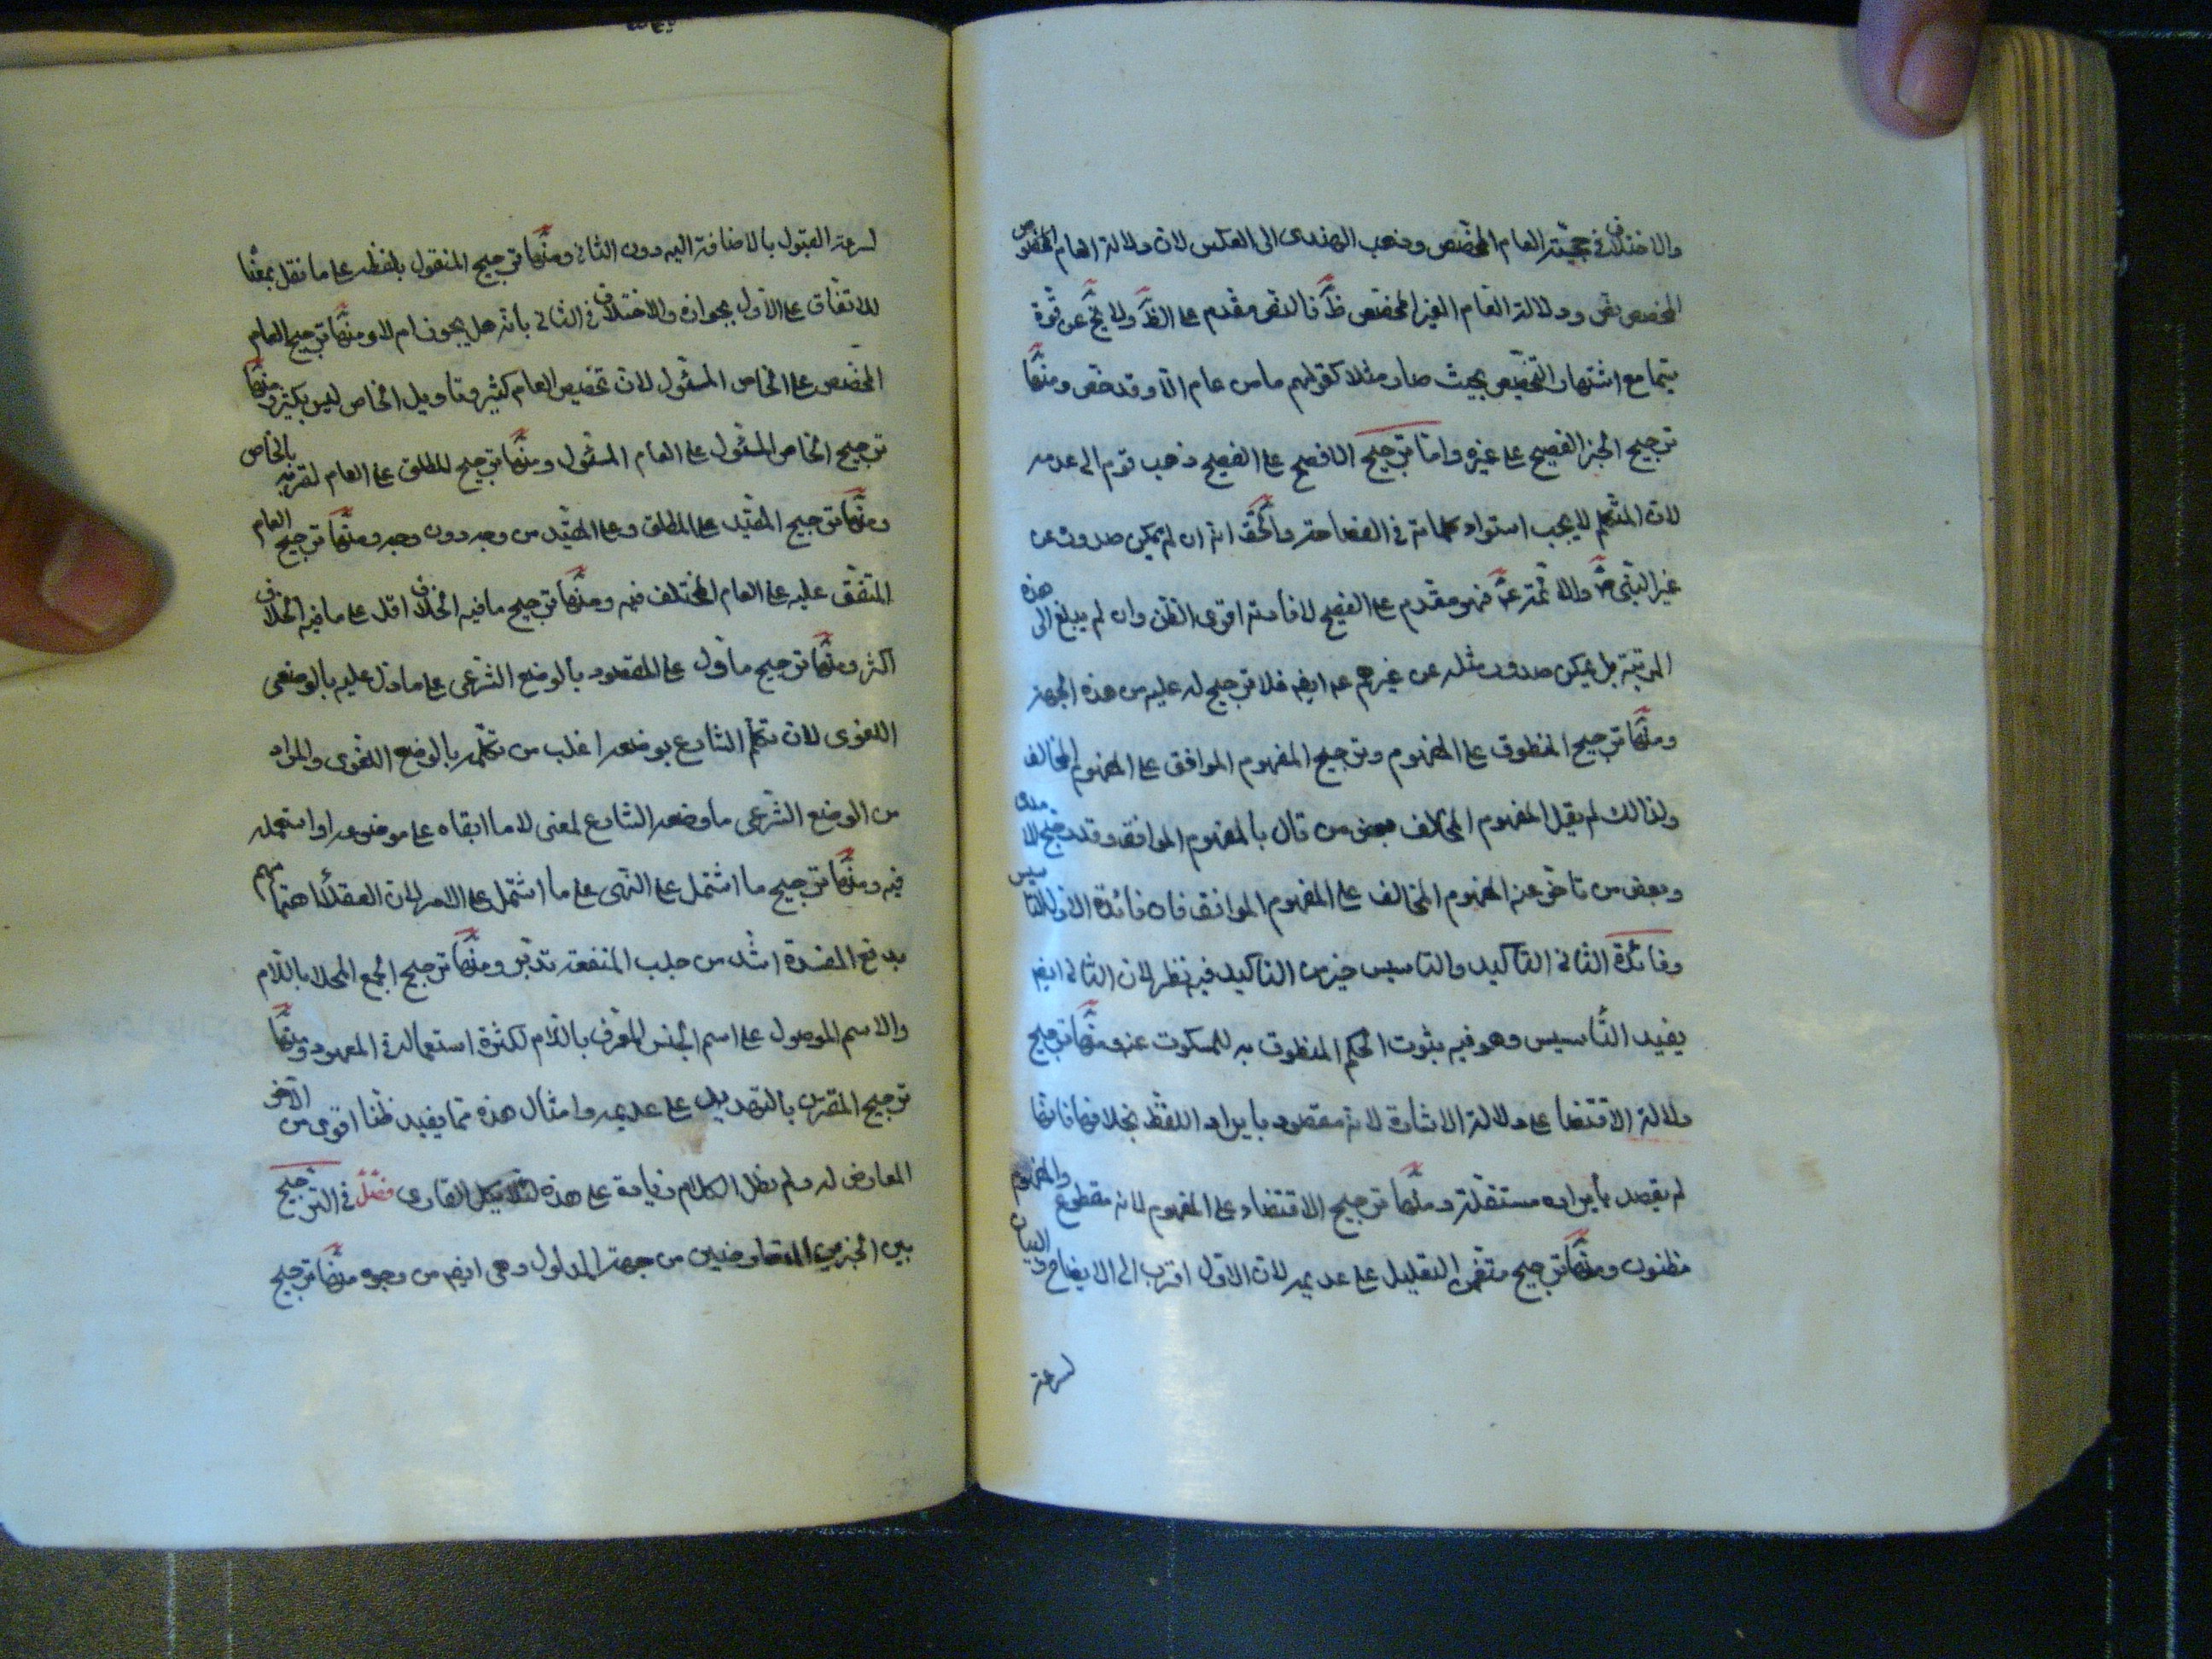 والاختلاف في حجيّة العام المخصّص وذهب الهندى الى العكس لان دلالة العام المخصوص
المخصص نص ودلالة العام الغير المخصّص ظ فالنص مقدم على الظ ولا يخ عن قوة
سيّما مع اشتهار التخصيص بحيث صار مثلا كقولهم ما من عام الّا وقد خص ومنها
ترجيح الخبر الفصيح على غيره وامّا ترجيح الافصح على الفصيح ذهب قوم الى عدمه
لان المتكلم لا يجب استواء كلماته في الفصاحة والحق انه ان لم يمكن صدوره عن
غير النبّى ص والائمّة ع فهو مقدم على الفصيح لافادته اقوى الظن وان لم يبلغ الى هذه
المرتبة بل يمكن صدور مثله عن غيرهم عم ايض فلا ترجيح له عليه من هذه الجهة
ومنها ترجيح المنطوق على المفهوم وترجيح المفهوم الموافق على المفهوم المخالف
ولذالك لم يقبل المفهوم المخالف بعض من قال بالمفهوم الموافق وقد رجح الامدى
وبعض من تاخر عنه المفهوم المخالف على المفهوم الموافق فان فائدة الاول التاسيس
وفائدة الثانى التأكيد والتاسيس خير من التاكيد فيه نظر لان الثانى ايض
يفيد التّأسيس وهو فيه بثوت الحكم المنطوق به للمسكوت عنه ومنها ترجيح
دلالة الاقتضا على دلالة الاشارة لانه مقصود بايراد اللفظ بخلافها فانها
لم يقصد بأيراده مستقلة ومنها ترجيح الاقتضاء على المفهوم لانه مقطوع والمفهوم
مظنون ومنها ترجيح متضمن التعليل على عديمه لان الاول اقرب الى الايضاح والبيان
لسرعة
لسرعة القبول بالاضافة اليه دون الثانى ومنها ترجيح المنقول بلفظه على ما نقل بمعنا
للاتفاق على الاول بجوازه والاختلاف في الثانى بانه هل يجوز ام لا ومنها ترجيح العام
المخصّص على الخاص المسئول لان تخصيص العام كثير وتاويل الخاص ليس بكثير ومنها
ترجيح الخاص المسئول على العام المسئول ومنها ترجيح المطلق على العام لقربه بالخاص
ومنها ترجيح المقيّد على المطلق وعلى المقيّد من وجه دون وجه ومنها ترجيح العام
المتفق عليه على العام المختلف فيه ومنها ترجيح ما فيه الخلاف اقل على ما فيه الخلاف
اكثر ومنها ترجيح ما دل على المقصود بالوضع الشرعى على ما دل عليه بالوضعى
اللغوى لان تكلم الشارع بوضعه اغلب من تكلمه بالوضع اللغوى والمراد
من الوضع الشرعى ما وضعه الشارع لمعنى لا ما ابقاه على موضوعه او استعمله
فيه ومنها ترجيح ما اشتمل على النهى على ما اشتمل على الامر لان العقلأ اهتمامهم
بدفع المفسدة اشد من جلب المنفعة تدبّر ومنها ترجيح الجمع المحلا باللّام
والاسم الموصول على اسم الجنس المعرف باللّام لكثرة استعماله في المعهود ومنها
ترجيح المقترن بالتهديد على عديمه وامثال هذه ممّا يفيد ظنا اقوى من الآخر
المعارض له ولم نطل الكلام زيادة على هذه لئلا يكل القارى فصل في الترجيح
بين الخبرين المتعارضين من جهة المدلول وهى ايض من وجوه منها ترجيح